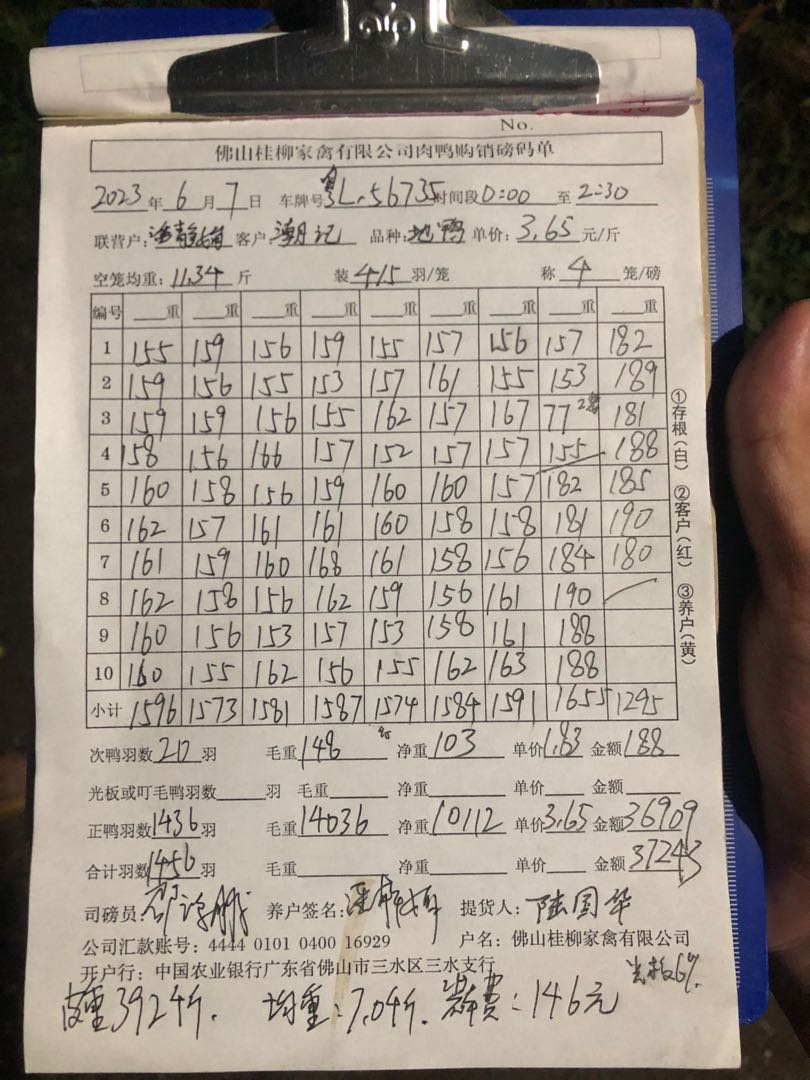 No.
佛山桂柳家禽有限公司肉鸭购销磅码单
2023年6月7日 车牌号粤L.56735时间段0:00至2:30
联营户: 客户:潮记 品种:地鸭 单价:3.65元/斤
空笼均重:11.34斤 装415羽/笼 称4笼/磅
编号 重 重 重 重 重 重 重 重 重
1 155 159 156 159 155 157 156 157 182
2 159 156 155 153 157 161 155 153 189
3 159 159 156 155 162 157 167 77 181
4 158 156 166 157 152 157 157 155 188
5 160 158 156 159 160 160 157 182 185
6 162 157 161 161 160 158 158 181 190
7 161 159 160 168 161 158 156 184 180
8 162 158 156 162 159 156 161 190
9 160 156 153 157 153 158 161 188
10 160 155 162 156 155 162 163 188
小计 1596 1573 1581 1587 1574 1584 1591 1655 1295
次鸭羽数20羽 毛重148 45 净重103 单价1.83 金额188
光板或叮毛鸭羽数 羽 毛重 净重 单价 金额
正鸭羽数1436羽 毛重14036 净重10112 单价3.65 金额36909
合计羽数1456羽 毛重 净重 单价 金额37243
司磅员 养户签名: 提货人:陆国华
公司汇款账号:4444 0101 0400 16929 户名:佛山桂柳家禽有限公司
开户行:中国农业银行广东省佛山市三水区三水支行
皮重3924斤. 均重:7.04斤. 费:146元
①存根(白) ②客户(红) ③养户(黄)